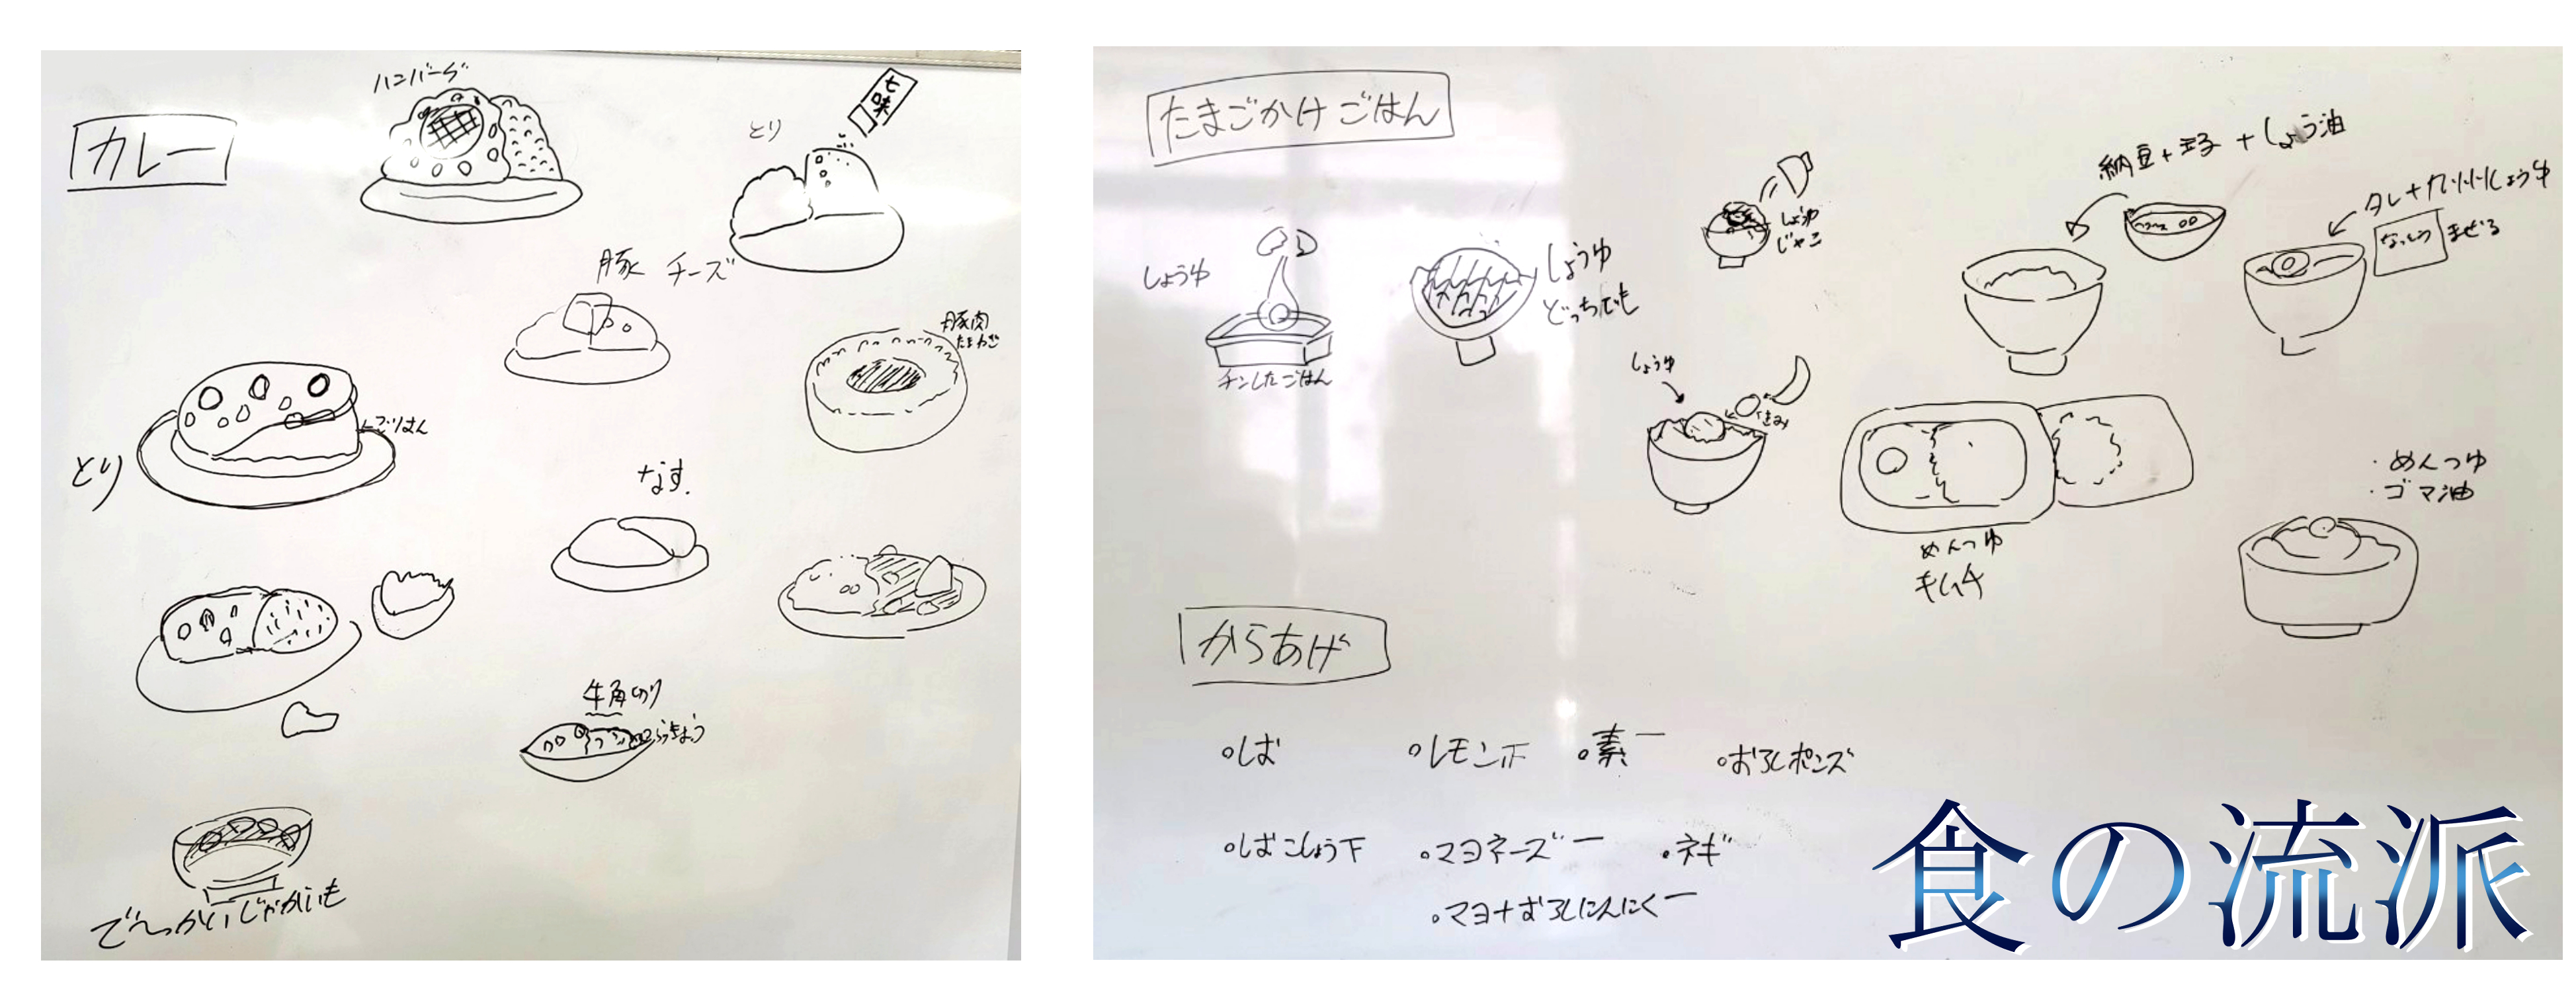 カレー
ハンバーグ
とり
七味
豚 チーズ
豚肉
たまねぎ
とり
ごはん
なす
牛角切り
らっきょう
でっかいじゃがいも
たまごかけごはん
しょうゆ
チンしたごはん
しょうゆ
どっちでも
しょうゆ
じゃこ
しょうゆ
きみ
納豆+玉子+しょう油
タレ+九州しょうゆ
なっとう
まぜる
めんつゆ
キムチ
・めんつゆ
・ゴマ油
からあげ
・しお
・レモン下
・素一
・おろしポンズ
・しおこしょう下
・マヨネーズ一
・ネギ
・マヨ+おろしにんにく一
食の流派